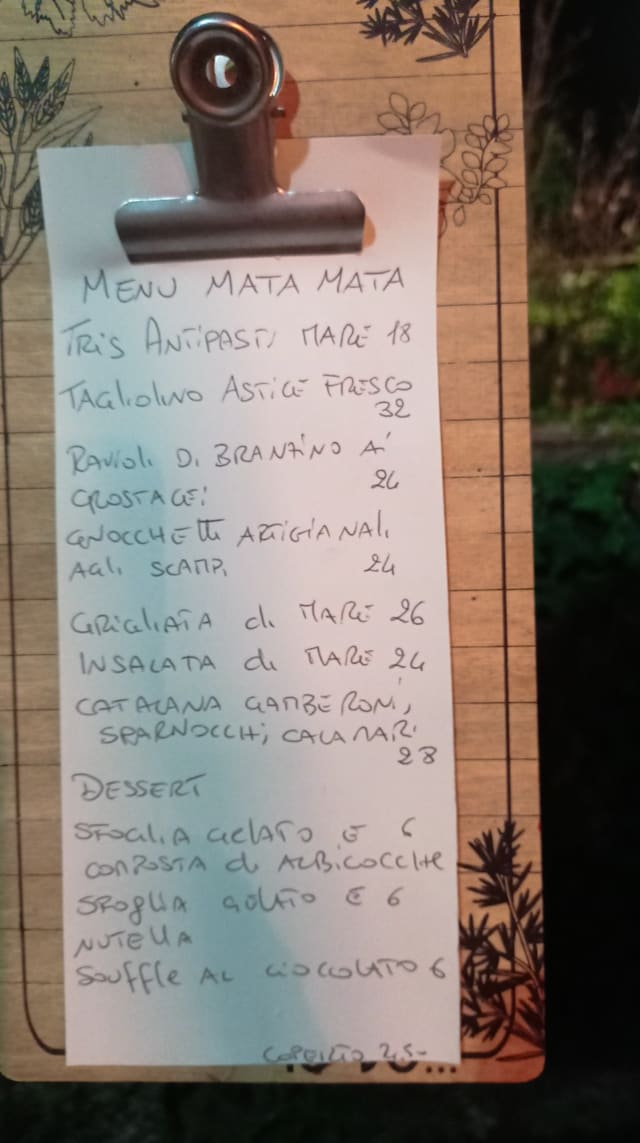 MENU MATA MATA
TRIS ANTIPASTI MARE 18
TAGLIOLINO ASTICE FRESCO
32
RAVIOLI DI BRANZINO AI
24
CROSTACEI
GNOCCHETTI ARTIGIANALI
AGLI SCAMPI 24
GRIGLIATA di MARE 26
INSALATA di MARE 24
CATALANA GAMBERONI,
SPARNOCCHI, CALAMARI
28
DESSERT
SFOGLIA GELATO E 6
COMPOSTA di ALBICOCCHE
SFOGLIA GELATO E 6
NUTELLA
SOUFFLE AL CIOCCOLATO 6
COPERTO 2,5-